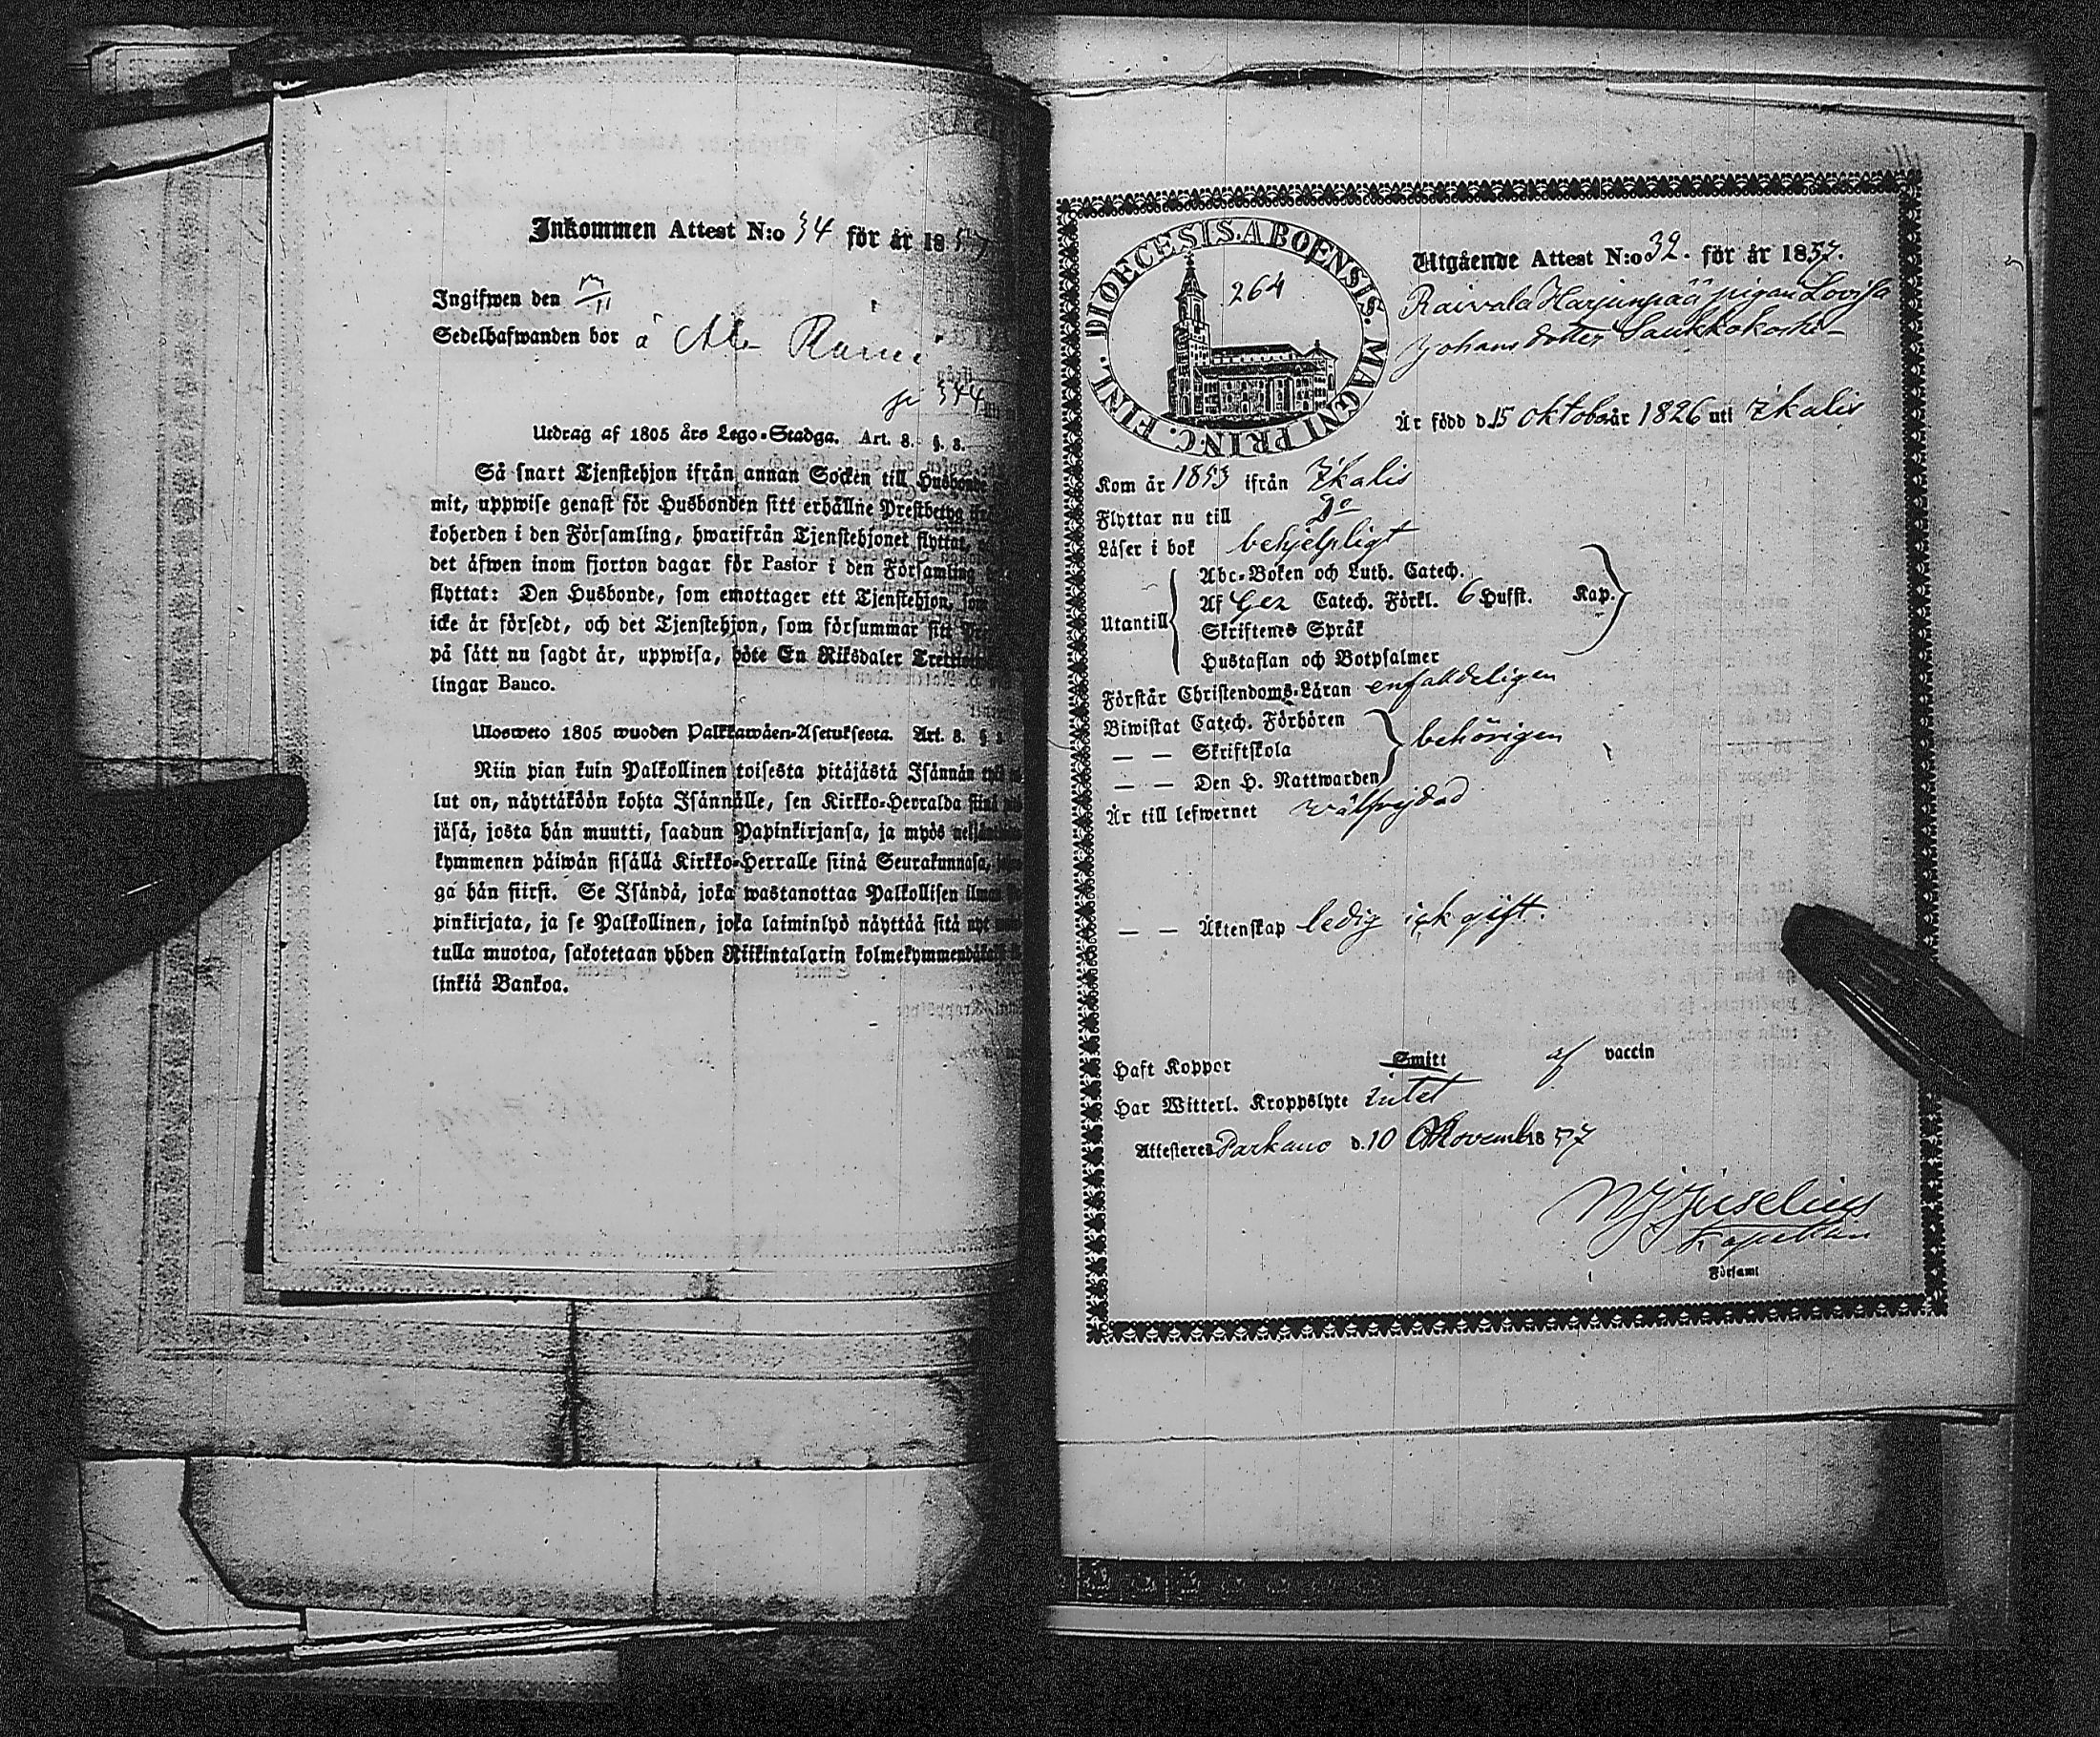 Inkommen Attest N:o 34 för år 185
Ingifwen den
Sedelhafwanden bor å
344
Utdrag af 1805 års Lego-Stadga. Art. 8. §. 8.
Så snart Tjenstehjon ifrån annan Socken till Husbonde
mit, uppwise genast för Husbonden sitt erhållne Prestbetyg
koherden i den Församling, hwarifrån Tjenstehjonet flyttat,
det äfwen inom fjorton dagar för Pastor i den Församling
flyttat: Den Husbonde, som emottager ett Tjenstehjon, som
icke är försedt, och det Tjenstehjon, som försummar sitt
på sätt nu sagdt är, uppwisa, böte En Riksdaler
lingar Banco.
Ulosweto 1805 wuoden Palkkawäen-Asetuksesta. Art. 8. §
Niin pian kuin Palkollinen toisesta pitäjästä Isännän
lut on, näyttäköön kohta Isännälle, sen Kirkko-Herralda siinä
jäsä, josta hän muutti, saadun Papinkirjansa, ja myös
kymmenen päiwän sisällä Kirkko-Herralle siinä Seurakunnasa,
ga hän siirsi. Se Isändä, joka wastanottaa Palkollisen ilman
pinkirjata, ja se Palkollinen, joka laiminlyö näyttää sitä nyt
tulla muotoa, sakotetaan yhden Riikintalarin
linkiä Bankoa.
DIOECESIS.ABOENSIS. MAGNI PRINC. FINL.
264
Utgående Attest N:o 32. för år 1857.
Raivala Harjunpää pigan Lovisa
Johansdotter Saukkokoski
Är född d. 15 Oktober år 1826 uti Ikalis
Kom år 1853 ifrån Ikalis
Flyttar nu till Do
Läser i bok behjelpligt
Utantill
Abc-Boken och Luth. Catech.
Af Gez Catech. Förkl. 6 Hufst. Kap.
Skriftenes Språk
Hustaflan och Botpsalmer
Förstår Christendoms-Läran enfaldeligen
Biwistat Catech. Förhören
— — Skriftskola behörigen
— — Den H. Nattwarden
Är till lefwernet wälfrejdad
— — Äktenskap ledig ick gift.
Haft Koppor Smitt af vaccin
Har Witterl. Kroppslyte intet
Attesteres Parkano d. 10 Novemb 18 57
Juselius
Kapellan
Församl